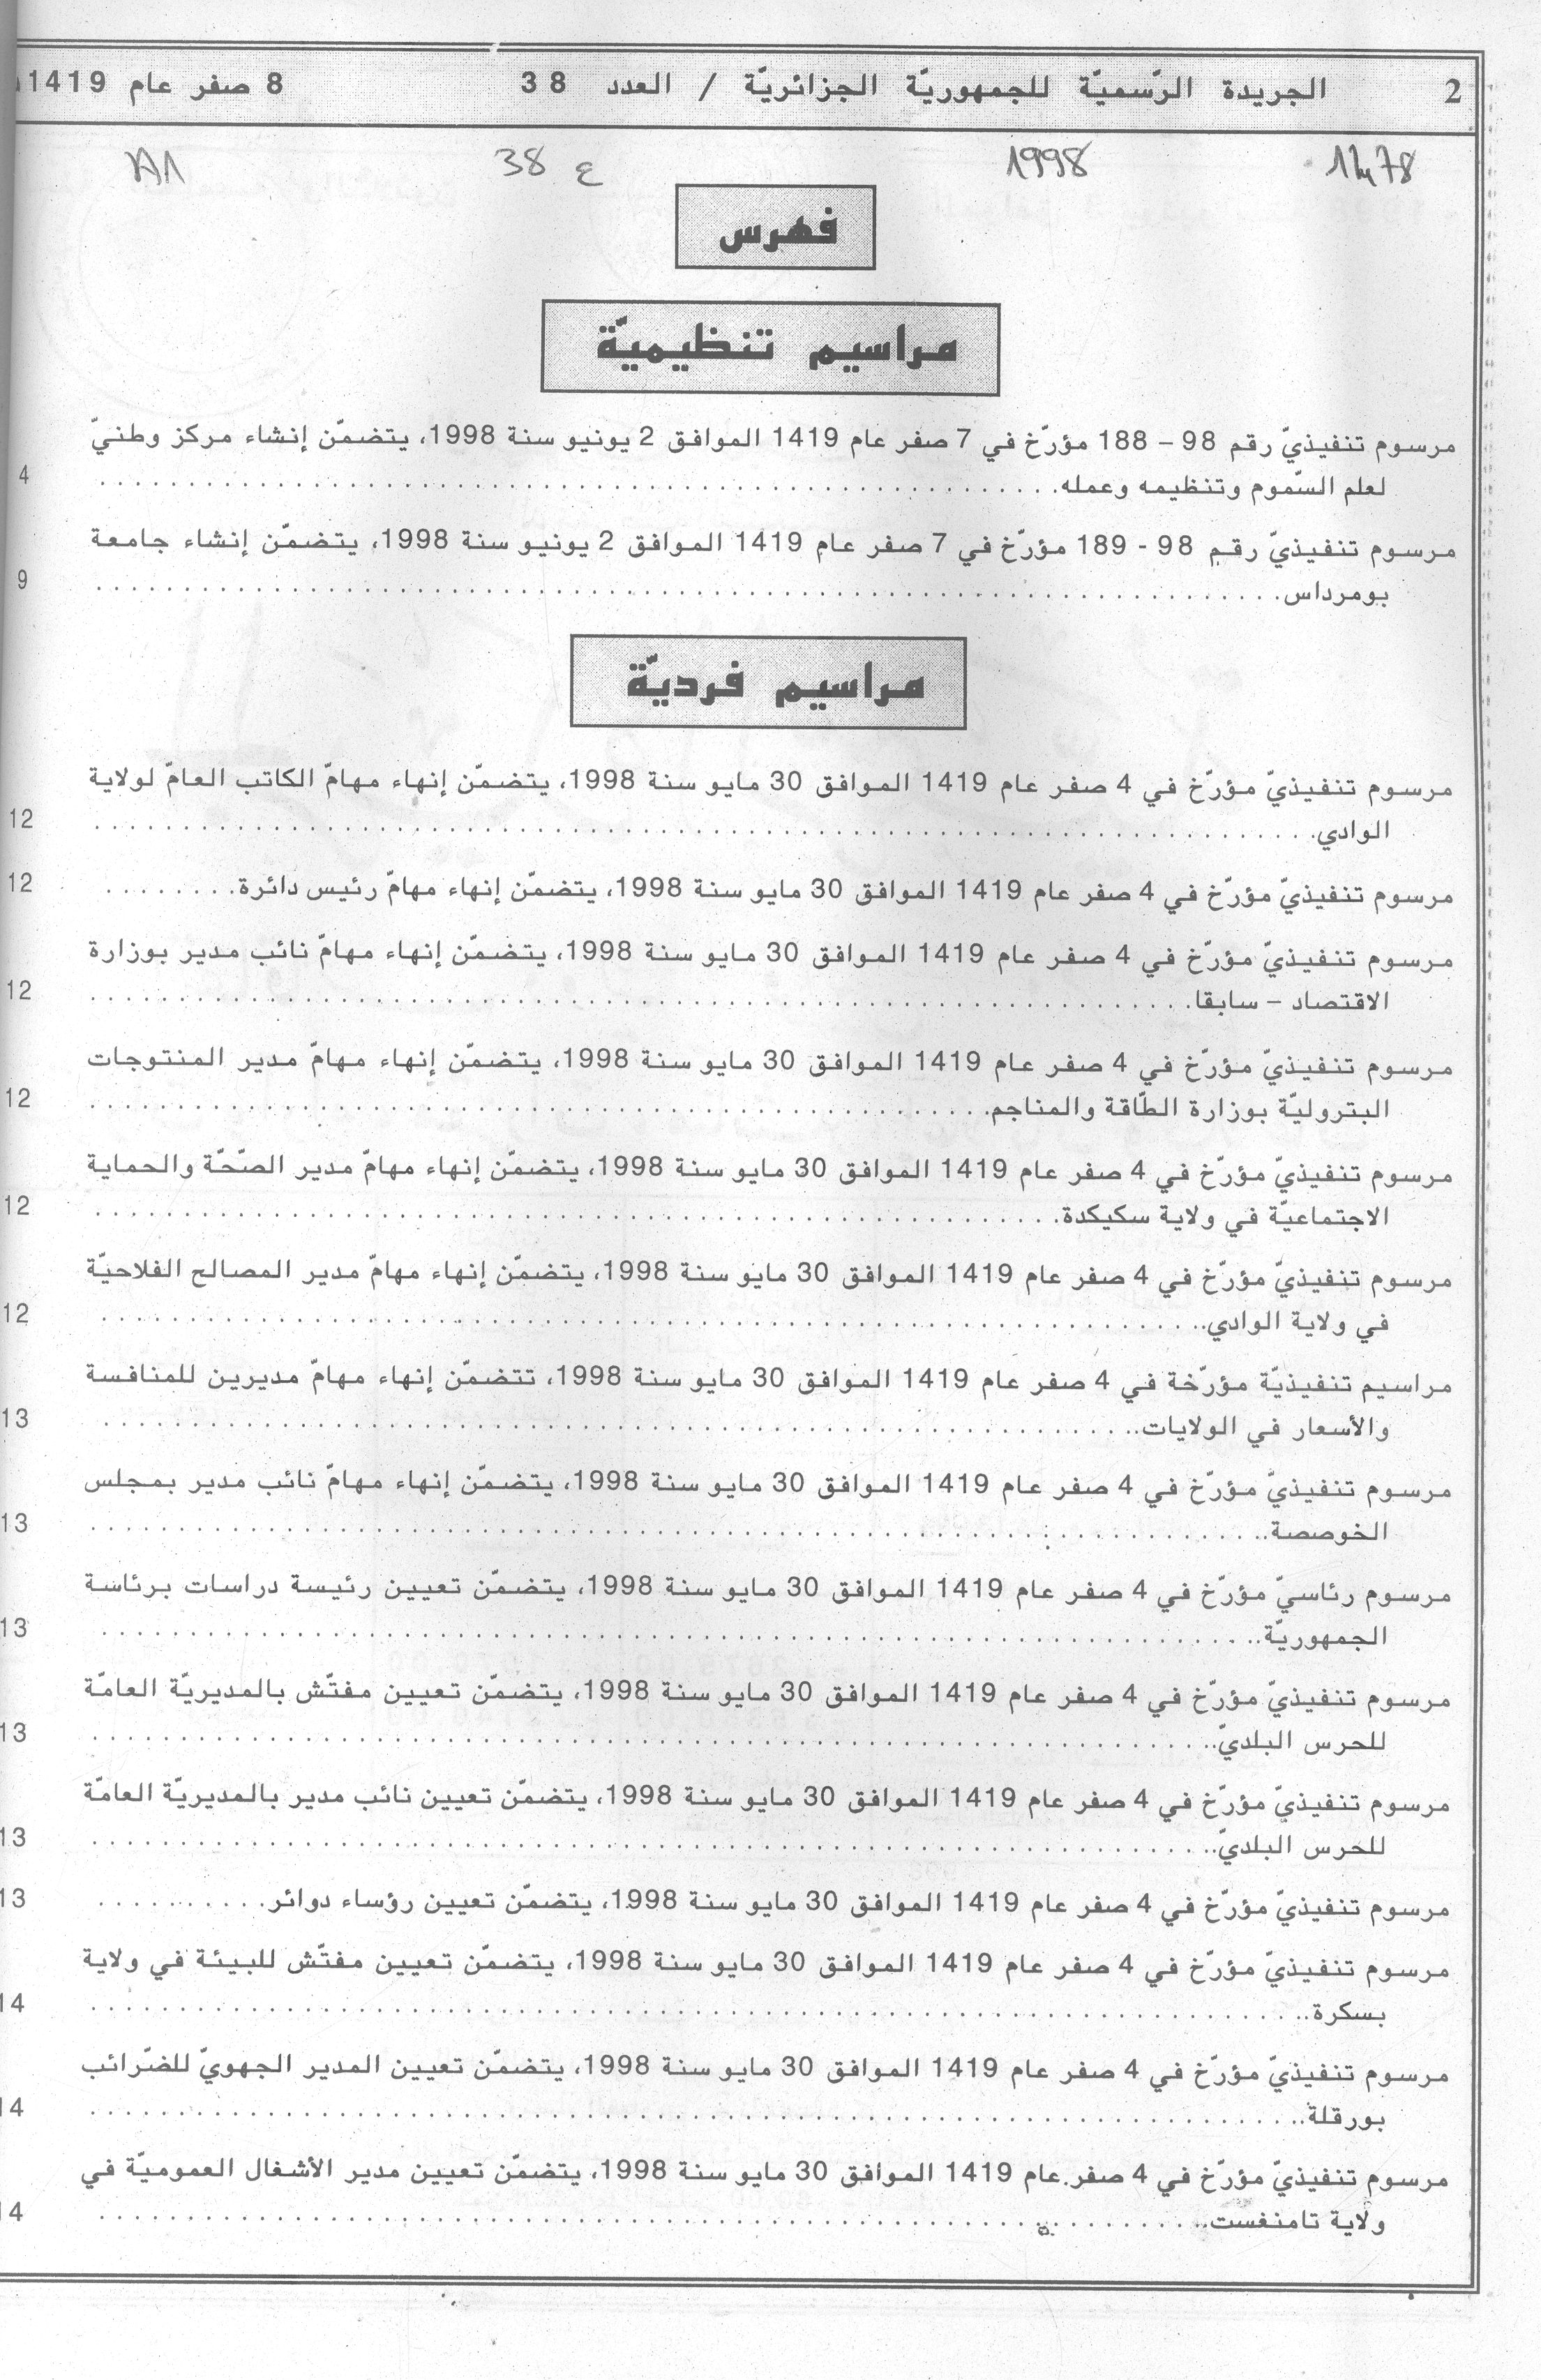 2 الجريدة الرّسميّة للجمهوريّة الجزائريّة / العدد 38 8 صفر عام 1419
1998 ع 38
فهرس
مراسيم تنظيميّة
مرسوم تنفيذيّ رقم 98 – 188 مؤرّخ في 7 صفر عام 1419 الموافق 2 يونيو سنة 1998، يتضمّن إنشاء مركز وطنيّ
لعلم السّموم وتنظيمه وعمله. 4
مرسوم تنفيذيّ رقم 98 - 189 مؤرّخ في 7 صفر عام 1419 الموافق 2 يونيو سنة 1998، يتضمّن إنشاء جامعة
بومرداس. 9
مراسيم فرديّة
مرسوم تنفيذيّ مؤرّخ في 4 صفر عام 1419 الموافق 30 مايو سنة 1998، يتضمّن إنهاء مهامّ الكاتب العامّ لولاية
الوادي. 12
مرسوم تنفيذيّ مؤرّخ في 4 صفر عام 1419 الموافق 30 مايو سنة 1998، يتضمّن إنهاء مهامّ رئيس دائرة. 12
مرسوم تنفيذيّ مؤرّخ في 4 صفر عام 1419 الموافق 30 مايو سنة 1998، يتضمّن إنهاء مهامّ نائب مدير بوزارة
الاقتصاد – سابقا. 12
مرسوم تنفيذيّ مؤرّخ في 4 صفر عام 1419 الموافق 30 مايو سنة 1998، يتضمّن إنهاء مهامّ مدير المنتوجات
البتروليّة بوزارة الطّاقة والمناجم. 12
مرسوم تنفيذيّ مؤرّخ في 4 صفر عام 1419 الموافق 30 مايو سنة 1998، يتضمّن إنهاء مهامّ مدير الصّحّة والحماية
الاجتماعيّة في ولاية سكيكدة. 12
مرسوم تنفيذيّ مؤرّخ في 4 صفر عام 1419 الموافق 30 مايو سنة 1998، يتضمّن إنهاء مهامّ مدير المصالح الفلاحيّة
في ولاية الوادي.. 12
مراسيم تنفيذيّة مؤرّخة في 4 صفر عام 1419 الموافق 30 مايو سنة 1998، تتضمّن إنهاء مهامّ مديرين للمنافسة
والأسعار في الولايات.. 13
مرسوم تنفيذيّ مؤرّخ في 4 صفر عام 1419 الموافق 30 مايو سنة 1998، يتضمّن إنهاء مهامّ نائب مدير بمجلس
الخوصصة.. 13
مرسوم رئاسيّ مؤرّخ في 4 صفر عام 1419 الموافق 30 مايو سنة 1998، يتضمّن تعيين رئيسة دراسات برئاسة
الجمهوريّة.. 13
مرسوم تنفيذيّ مؤرّخ في 4 صفر عام 1419 الموافق 30 مايو سنة 1998، يتضمّن تعيين مفتّش بالمديريّة العامّة
للحرس البلديّ.. 13
مرسوم تنفيذيّ مؤرّخ في 4 صفر عام 1419 الموافق 30 مايو سنة 1998، يتضمّن تعيين نائب مدير بالمديريّة العامّة
للحرس البلديّ.. 13
مرسوم تنفيذيّ مؤرّخ في 4 صفر عام 1419 الموافق 30 مايو سنة 1998، يتضمّن تعيين رؤساء دوائر. 13
مرسوم تنفيذيّ مؤرّخ في 4 صفر عام 1419 الموافق 30 مايو سنة 1998، يتضمّن تعيين مفتّش للبيئة في ولاية
بسكرة.. 14
مرسوم تنفيذيّ مؤرّخ في 4 صفر عام 1419 الموافق 30 مايو سنة 1998، يتضمّن تعيين المدير الجهويّ للضّرائب
بورقلة.. 14
مرسوم تنفيذيّ مؤرّخ في 4 صفر عام 1419 الموافق 30 مايو سنة 1998، يتضمّن تعيين مدير الأشغال العموميّة في
ولاية تامنغست.. 14